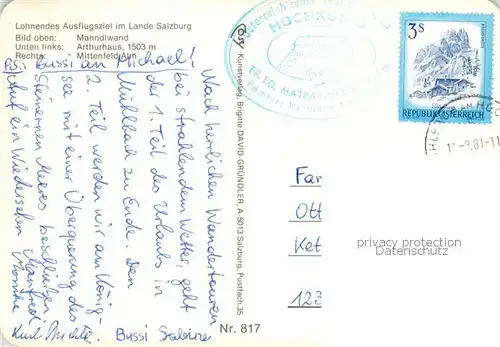 Lohnendes Ausflugsziel im Lande Salzburg
Bild oben: Manndlwand
Unten links: Arthurhaus, 1503 m
Rechts: Mittenfeldalm
PS: Bussi an Michael!
Nach herrlichen Wandertouren
bei strahlendem Wetter, geht
der 1. Teil des Urlaubs in
Mühlbach zu Ende. Den
2. Teil werden wir am König-
see mit einer Überquerung des
Steinernen Meeres beschließen.
Auf ein Wiedersehen
Manfred
Monika
Kurt
Bussi Sabine
Kunstverlag, Brigitte DAVID-GRÜNDLER, A-5013 Salzburg, Postfach 35
Nr. 817
HOCHKÖNIG
FR. ED. MATRAS
3 S
REPUBLIK ÖSTERREICH
AM HOC
-9.81-11
Fam
Ott
Ket
123
privacy protection
Datenschutz